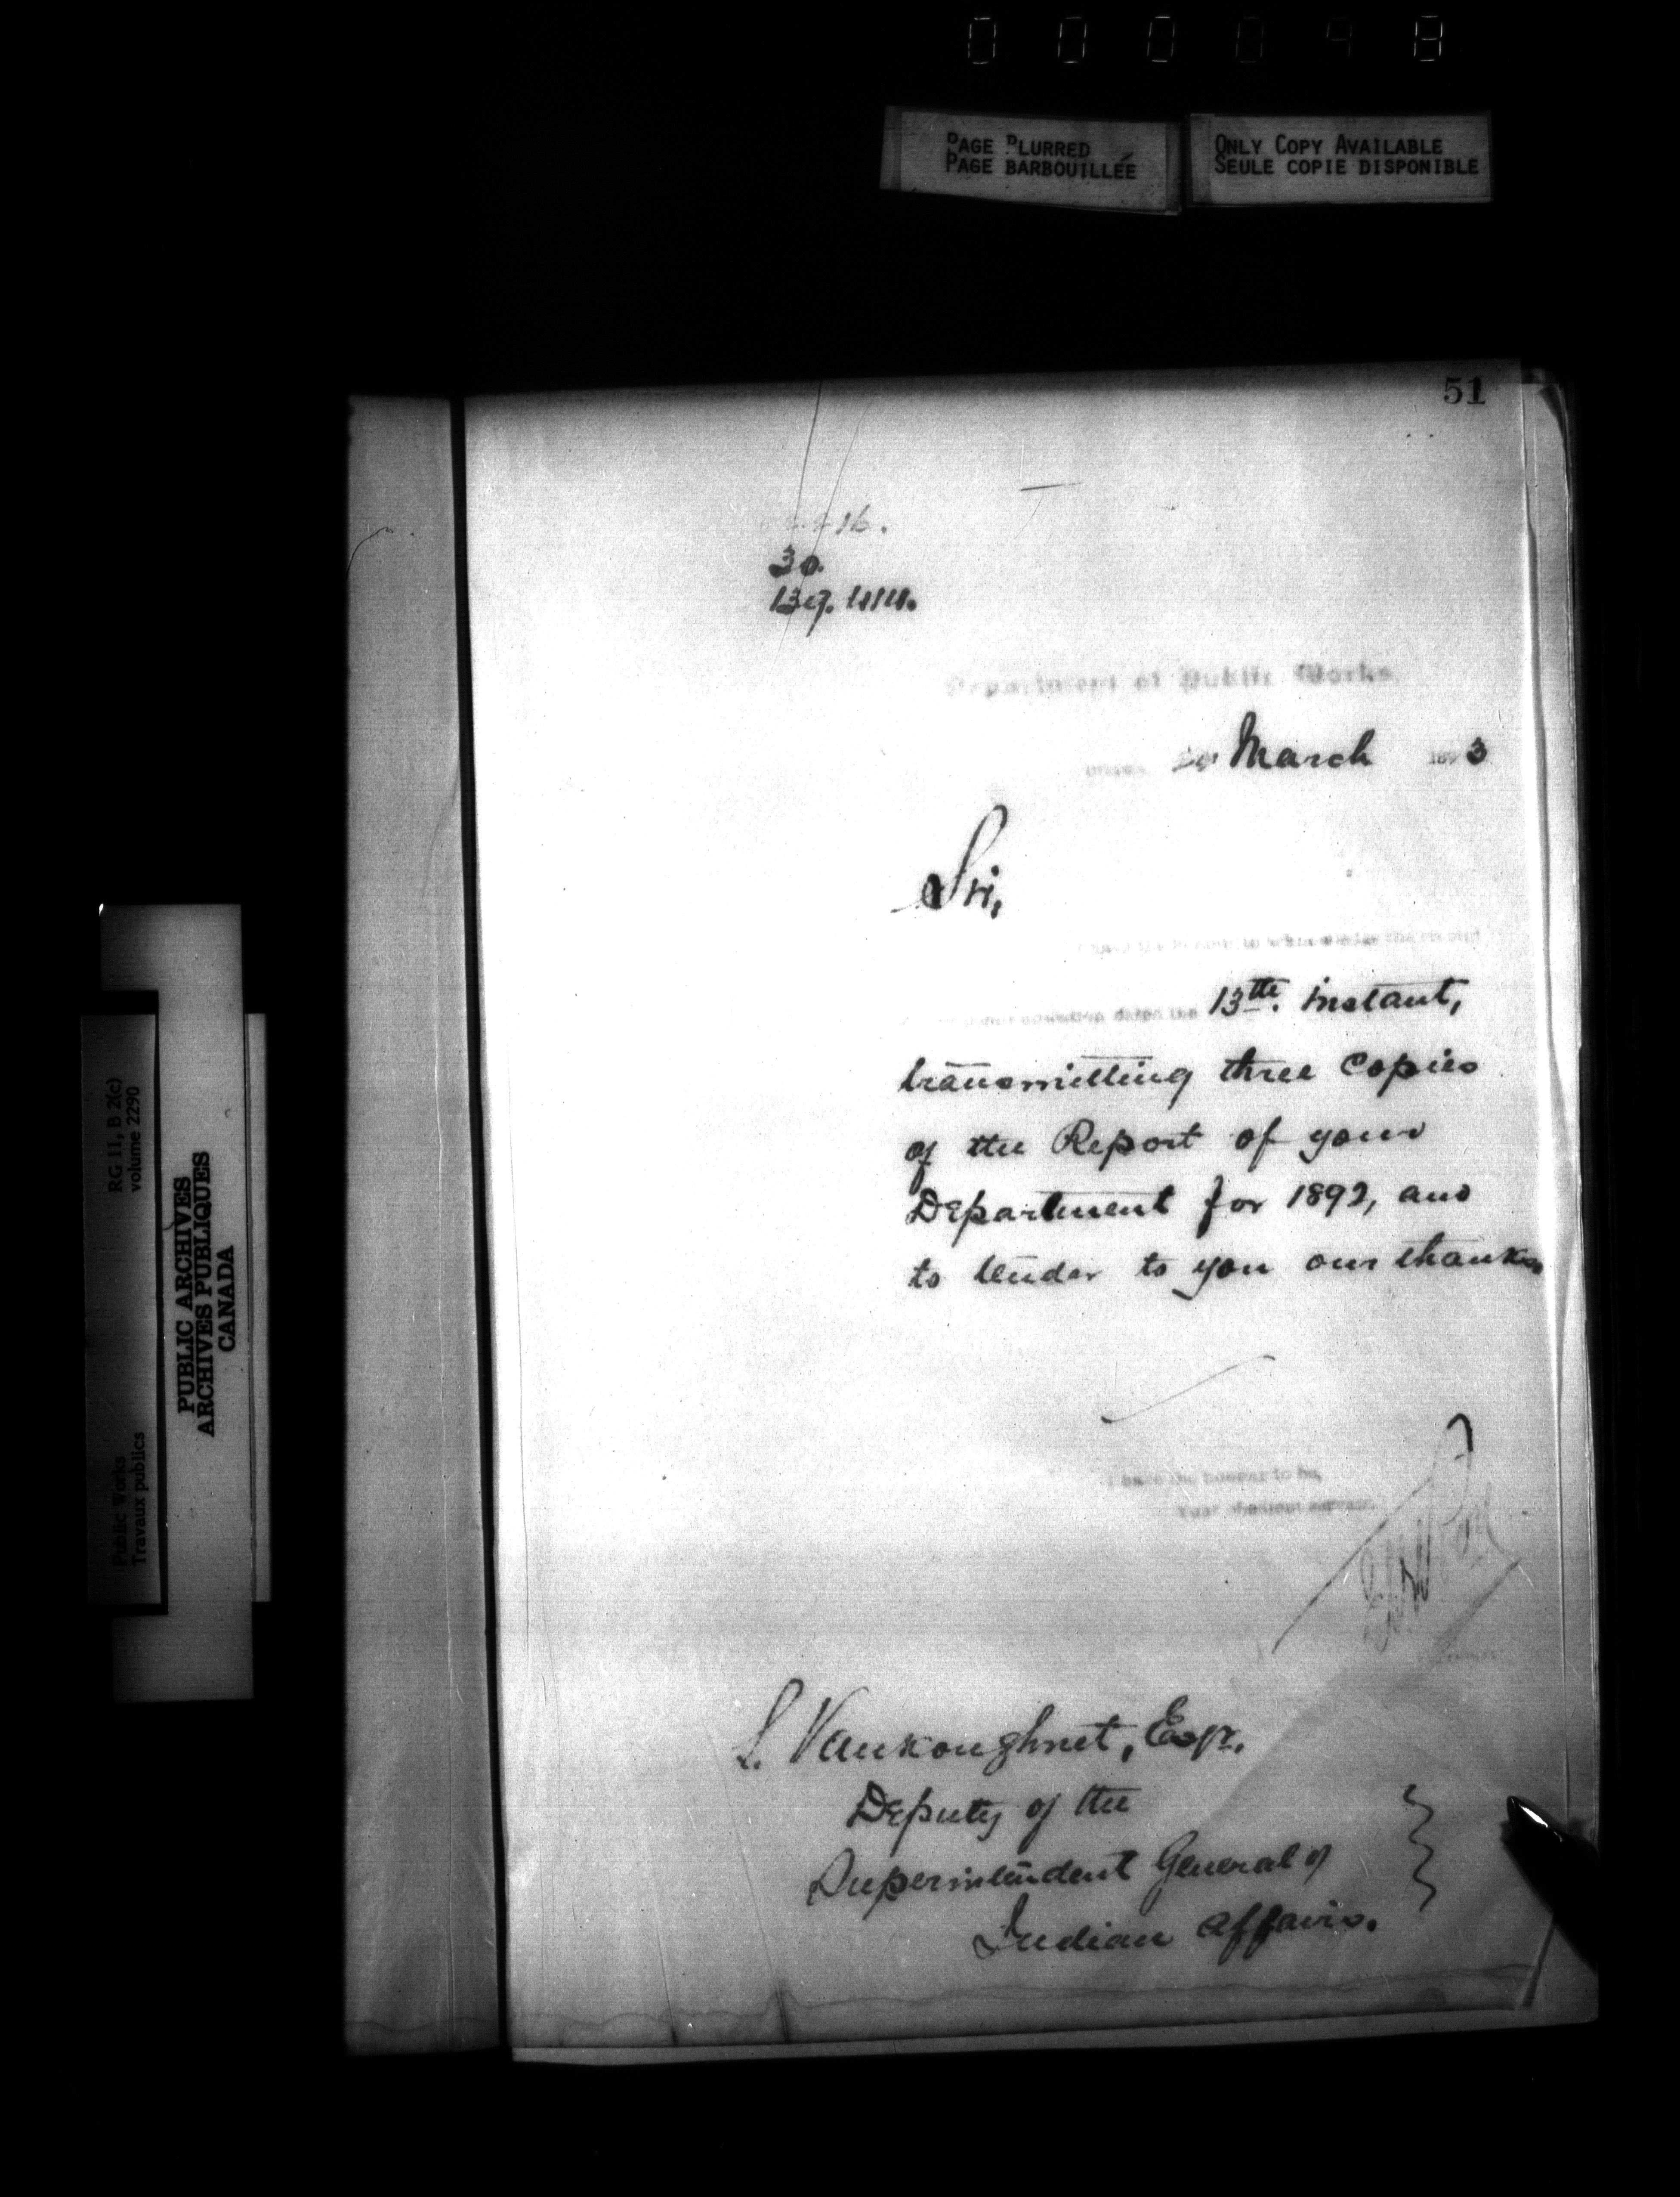 PAGE BLURRED
PAGE BARBOUILLÉE
ONLY COPY AVAILABLE
SEULE COPIE DISPONIBLE
51
16.
30.
Department of Public Works
March 1893
Sir,
I have the honour to acknowledge the receipt
dated the 13th. instant,
transmitting three Copies
of the Report of your
Department for 1892, and
to tender to you our thanks.
I have the honour to be,
Your obedient servant
L. Vankoughnet, Esqr.
Deputy of the
Superintendent General of
Indian Affairs.
RG 11, B 2(c)
volume 2290
Public Works
Travaux publics
PUBLIC ARCHIVES
ARCHIVES PUBLIQUES
CANADA